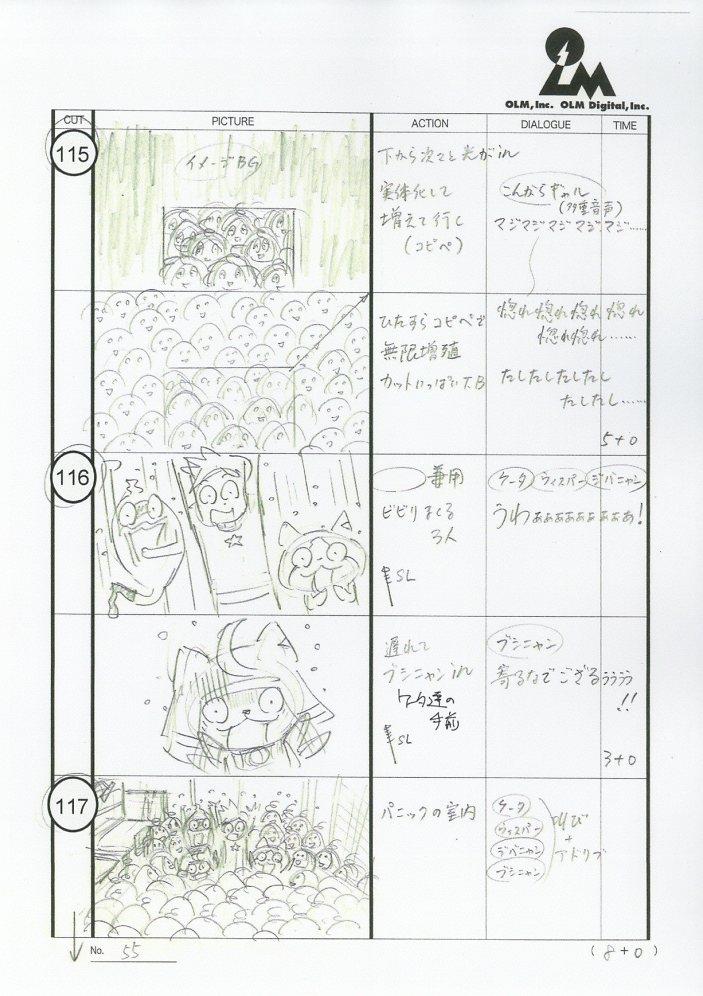 OLM
OLM, Inc. OLM Digital, Inc.
CUT PICTURE ACTION DIALOGUE TIME
115
イメージBG
下から次々と光がin
実体化して
増えて行く
(コピペ)
こんからギャル
(多重音声)
マジマジマジマジマジ……
ひたすらコピペで
無限増殖
カットいっぱいT.B
惚れ惚れ惚れ惚れ
惚れ惚れ……
たしたしたしたし
たしたし……
5+0
116
兼用
ビビりまくる
3人
SL
ケータ ウィスパー ジバニャン
うわぁぁぁぁぁぁぁぁぁ!
遅れて
ブシニャンin
ケータ達の
手前
SL
ブシニャン
寄るなでござるぅぅぅぅ
!!
3+0
117
パニックの室内
ケータ
ウィスパー
ジバニャン
ブシニャン
叫び
+
アドリブ
No. 55
(8+0)